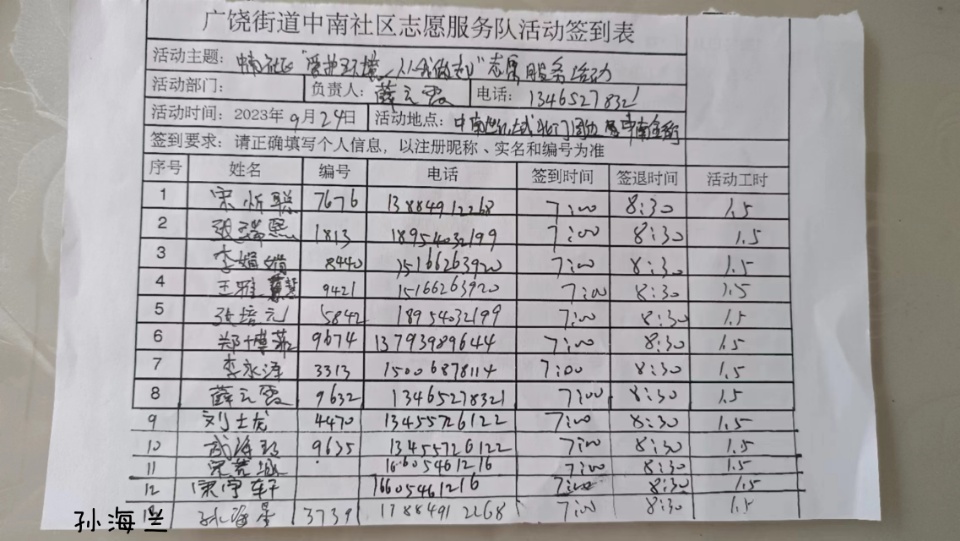 广饶街道中南社区志愿服务队活动签到表
活动主题: 中南社区"爱护环境 从我做起"志愿服务活动
活动部门: 负责人: 薛云霞 电话: 13465278321
活动时间: 2023年9月24日 活动地点: 中南世纪城北门周边
签到要求: 请正确填写个人信息,以注册昵称、实名和编号为准
序号 姓名 编号 电话 签到时间 签退时间 活动工时
1 宋炘聪 7676 13884912268 7:00 8:30 1.5
2 张瑞熙 1813 18954032199 7:00 8:30 1.5
3 李娟娟 8440 15166263920 7:00 8:30 1.5
4 王雅慧 9421 15166263920 7:00 8:30 1.5
5 张培元 5842 18954032199 7:00 8:30 1.5
6 郑博 9674 13793989644 7:00 8:30 1.5
7 李永涛 3313 15006878114 7:00 8:30 1.5
8 薛云霞 9632 13465278321 7:00 8:30 1.5
9 刘士龙 4470 13455726122 7:00 8:30 1.5
10 9635 13455726122 7:00 8:30 1.5
11 16605461216 7:00 8:30 1.5
12 宋宇轩 16605461216 7:00 8:30 1.5
13 孙海兰 3739 13884912268 7:00 8:30 1.5
孙海兰